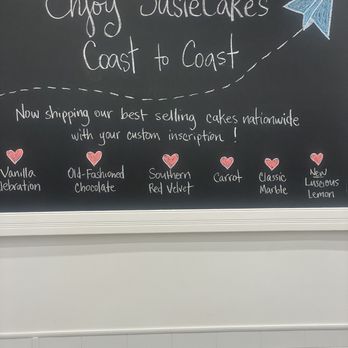 Enjoy SusieCakes
Coast to Coast
Now shipping our best selling cakes nationwide
with your custom inscription!
Vanilla
lebration
Old-Fashioned
Chocolate
Southern
Red Velvet
Carrot
Classic
Marble
New
Luscious
Lemon